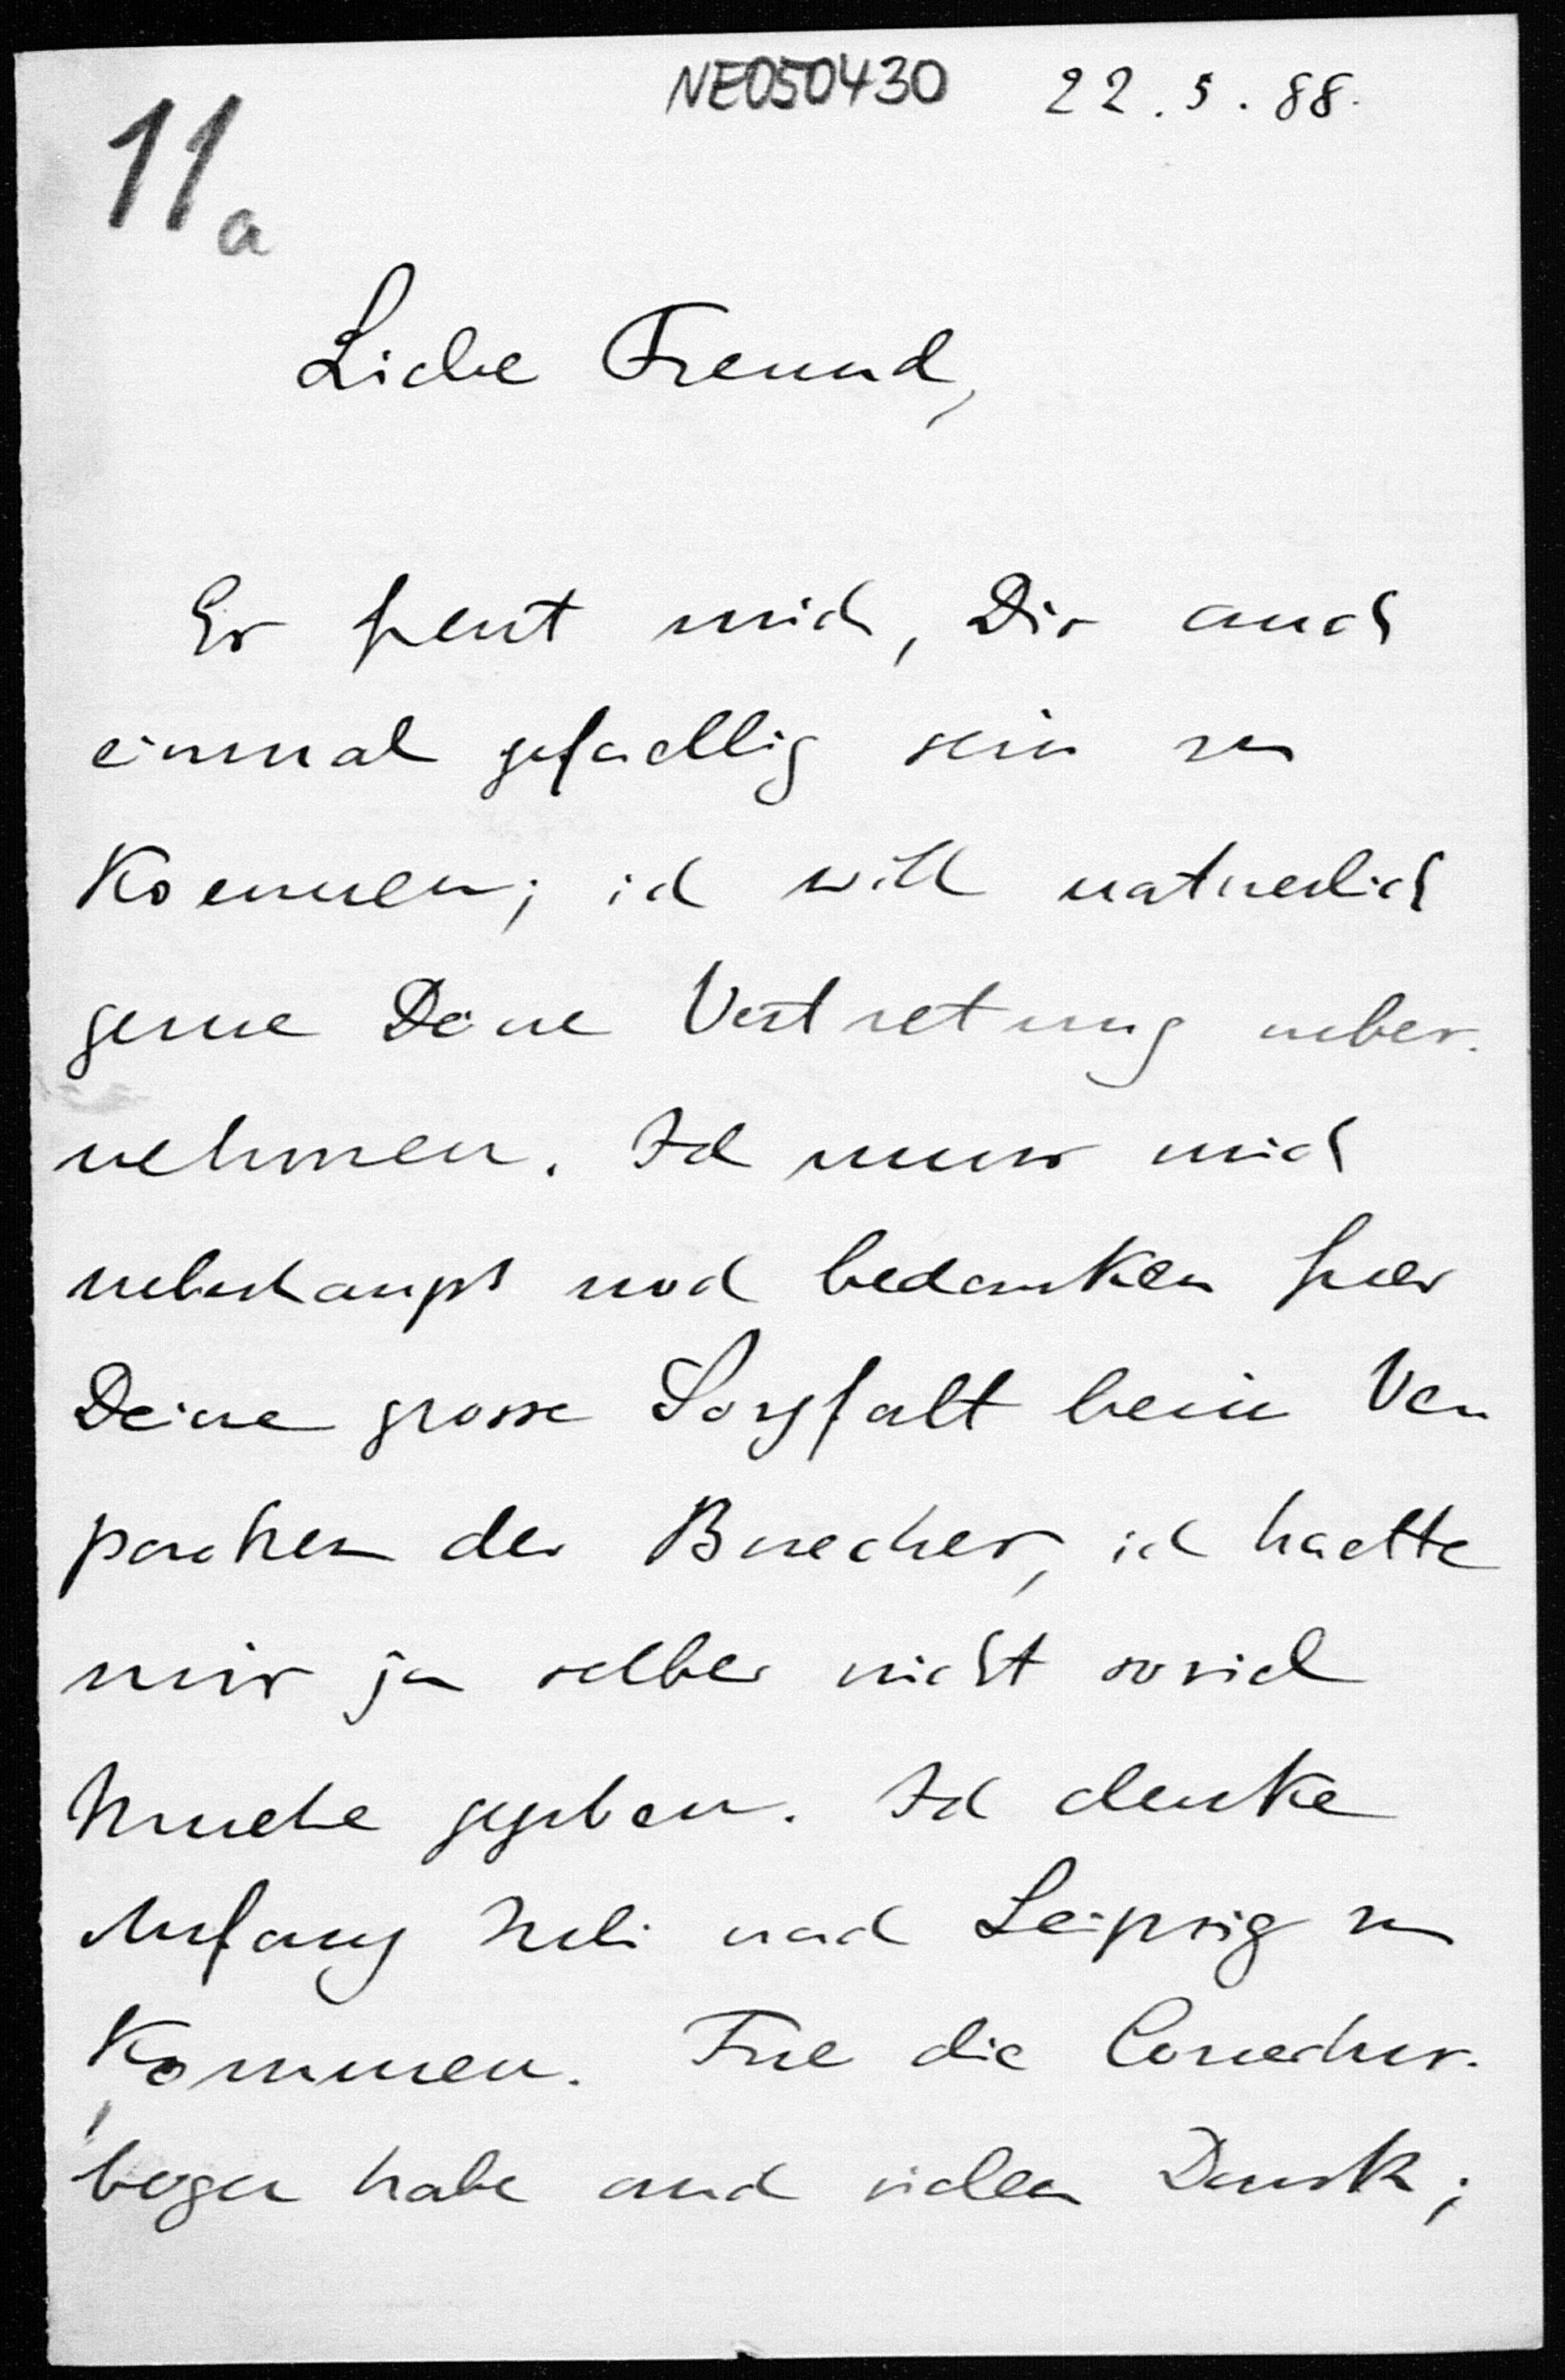 NE050430 22.5.88.
11a
Lieber Freund,
Es freut mich, Dir auch
einmal gefaellig sein zu
Koennen; ich will natuerlich
gerne Deine Vertretung ueber-
nehmen. Ich muss mich
ueberhaupt noch bedanken fuer
Deine grosse Sorgfalt beim Ver
packen der Buecher, ich haette
mir ja selber nicht soviel
Muehe gegeben. Ich denke
Anfang Juli nach Leipzig zu
Kommen. Fue die Correctur-
bogen habe auch vielen Dank;